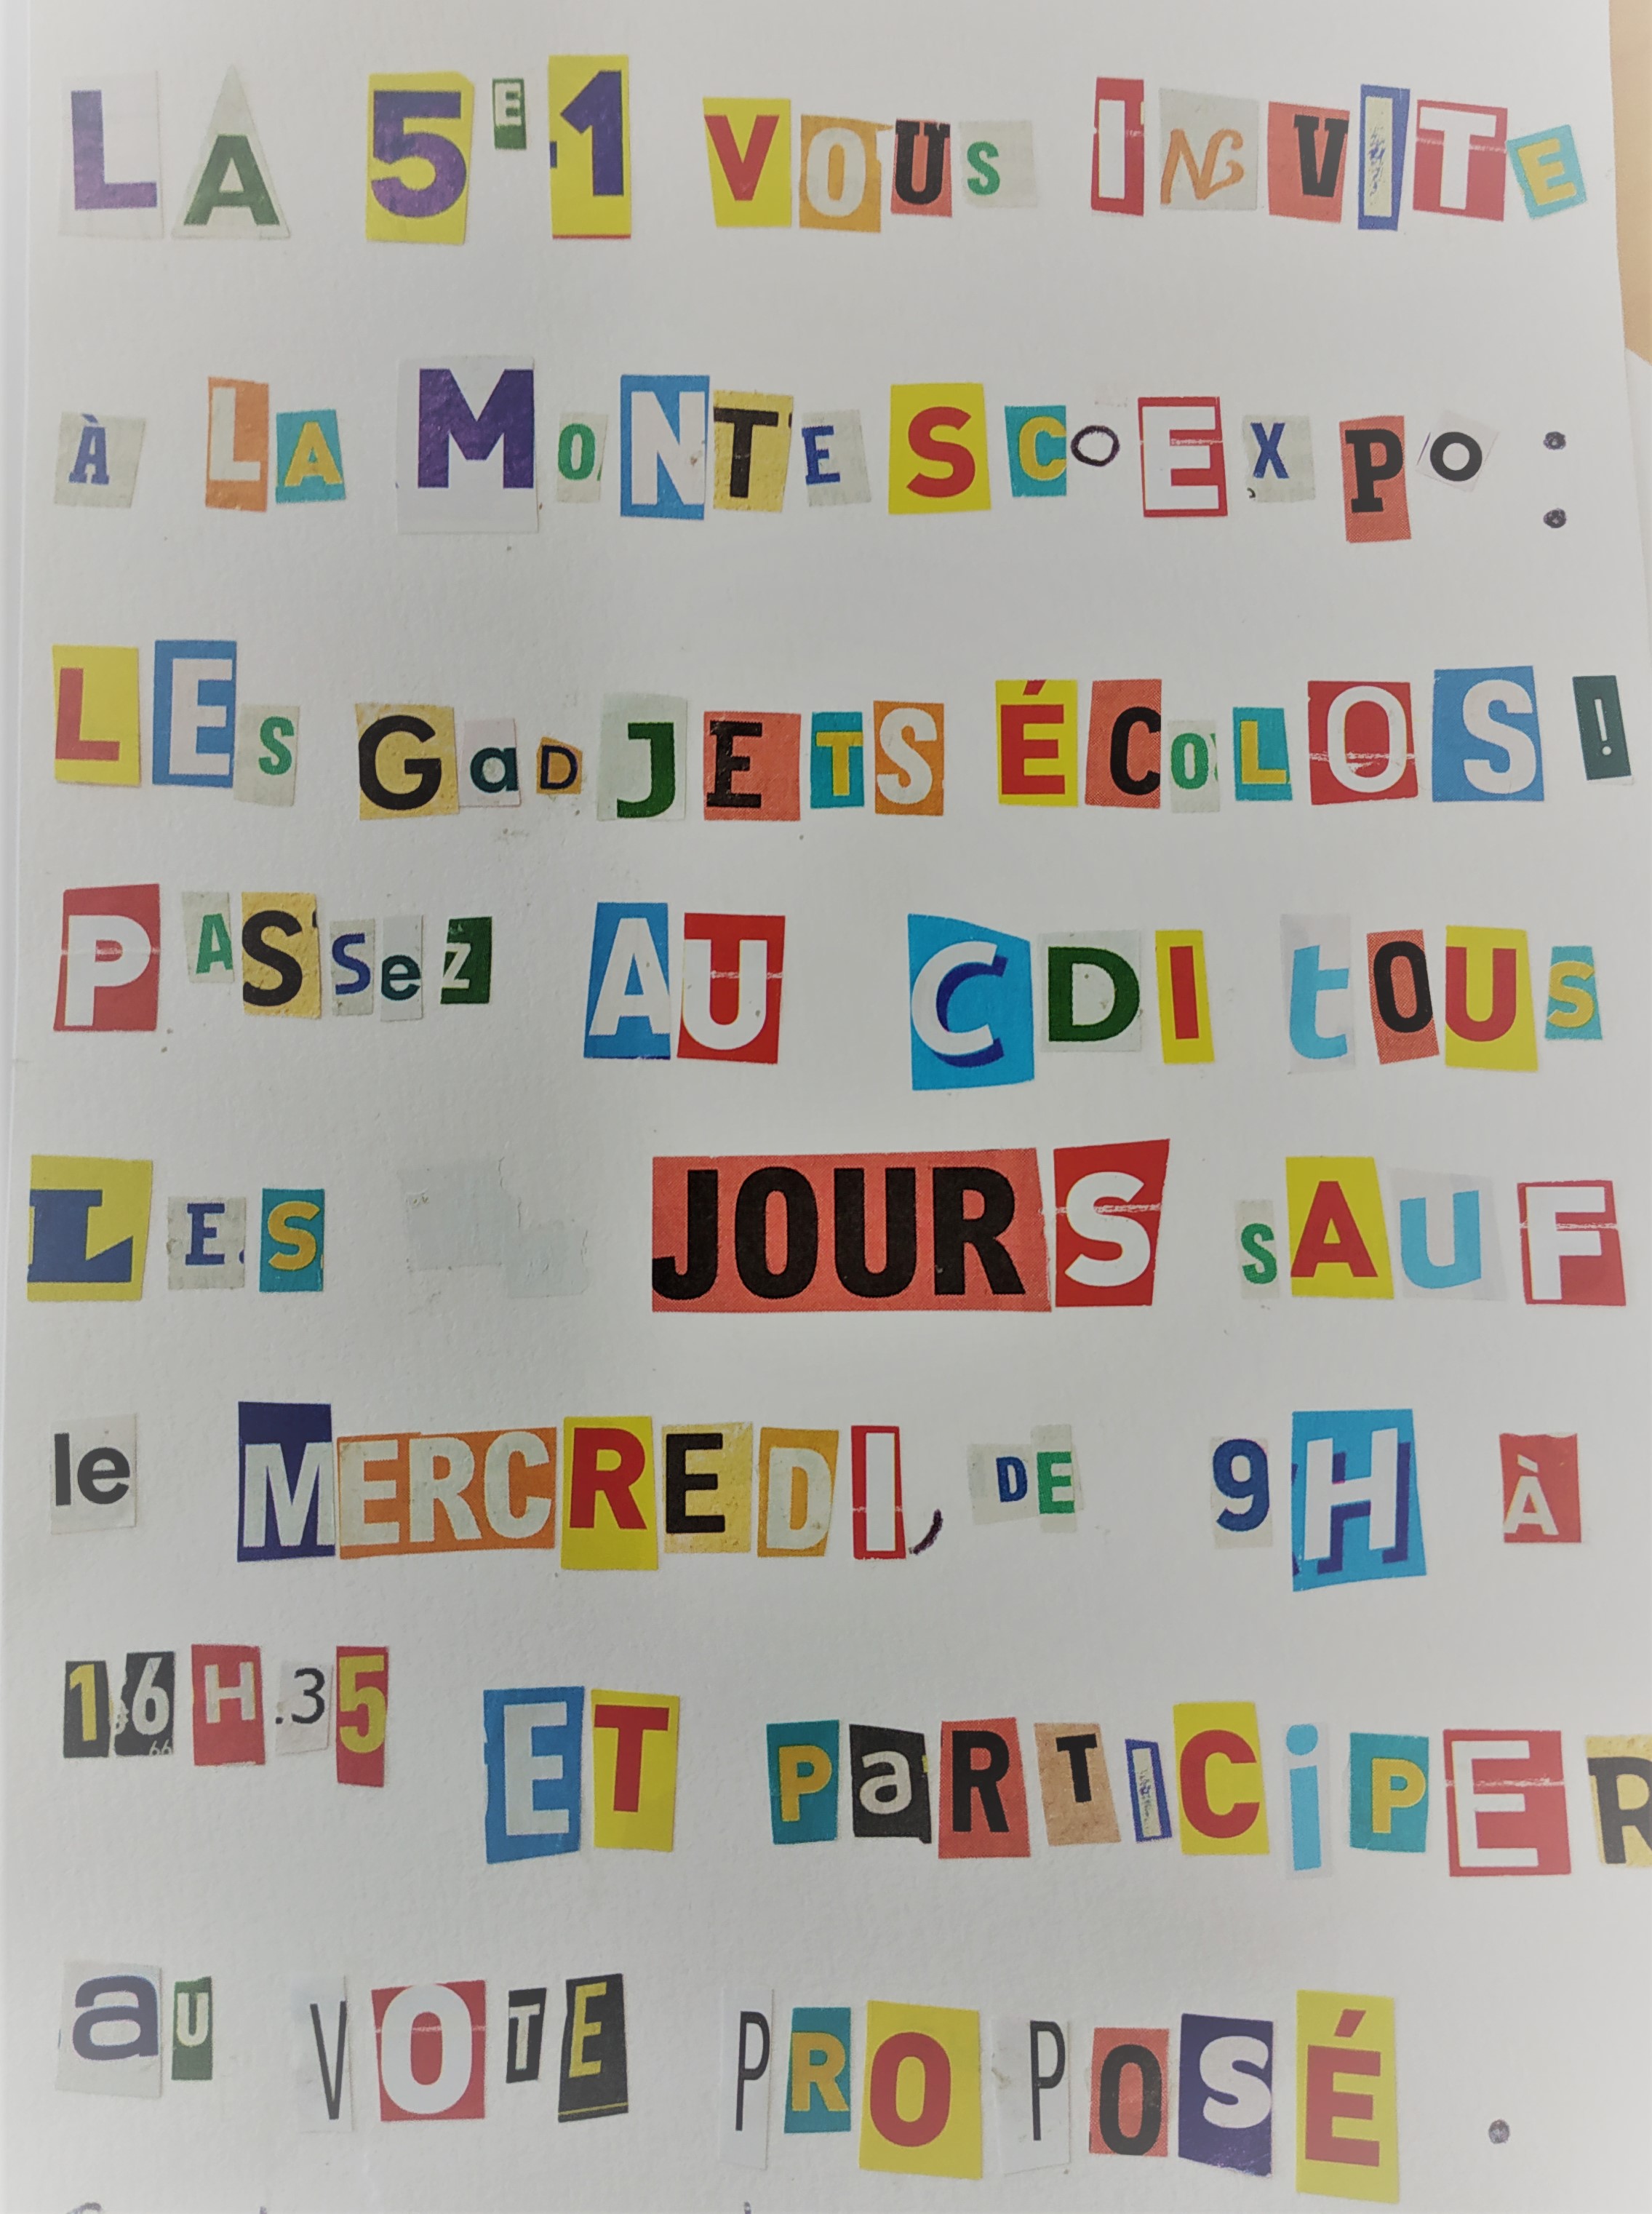 LA 5E1 VOUS INVITE
À LA MONTESCOEXPO :
LES GaDJETS ÉCOLOS!
PASSeZ AU CDI tOUS
LES JOURS SAUF
le MERCREDI, DE 9H À
16H35 ET PaRTICiPER
aU VOTE PROPOSÉ.